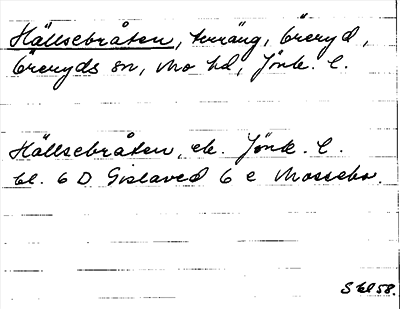 Hällsebråten, terräng, Öreryd,
Öreryds sn, Mo hd, Jönk. l.
Hällsebråten, ek. Jönk. l.
bl. 6 D Gislaved 6 e Mossebo.
S bl 58.